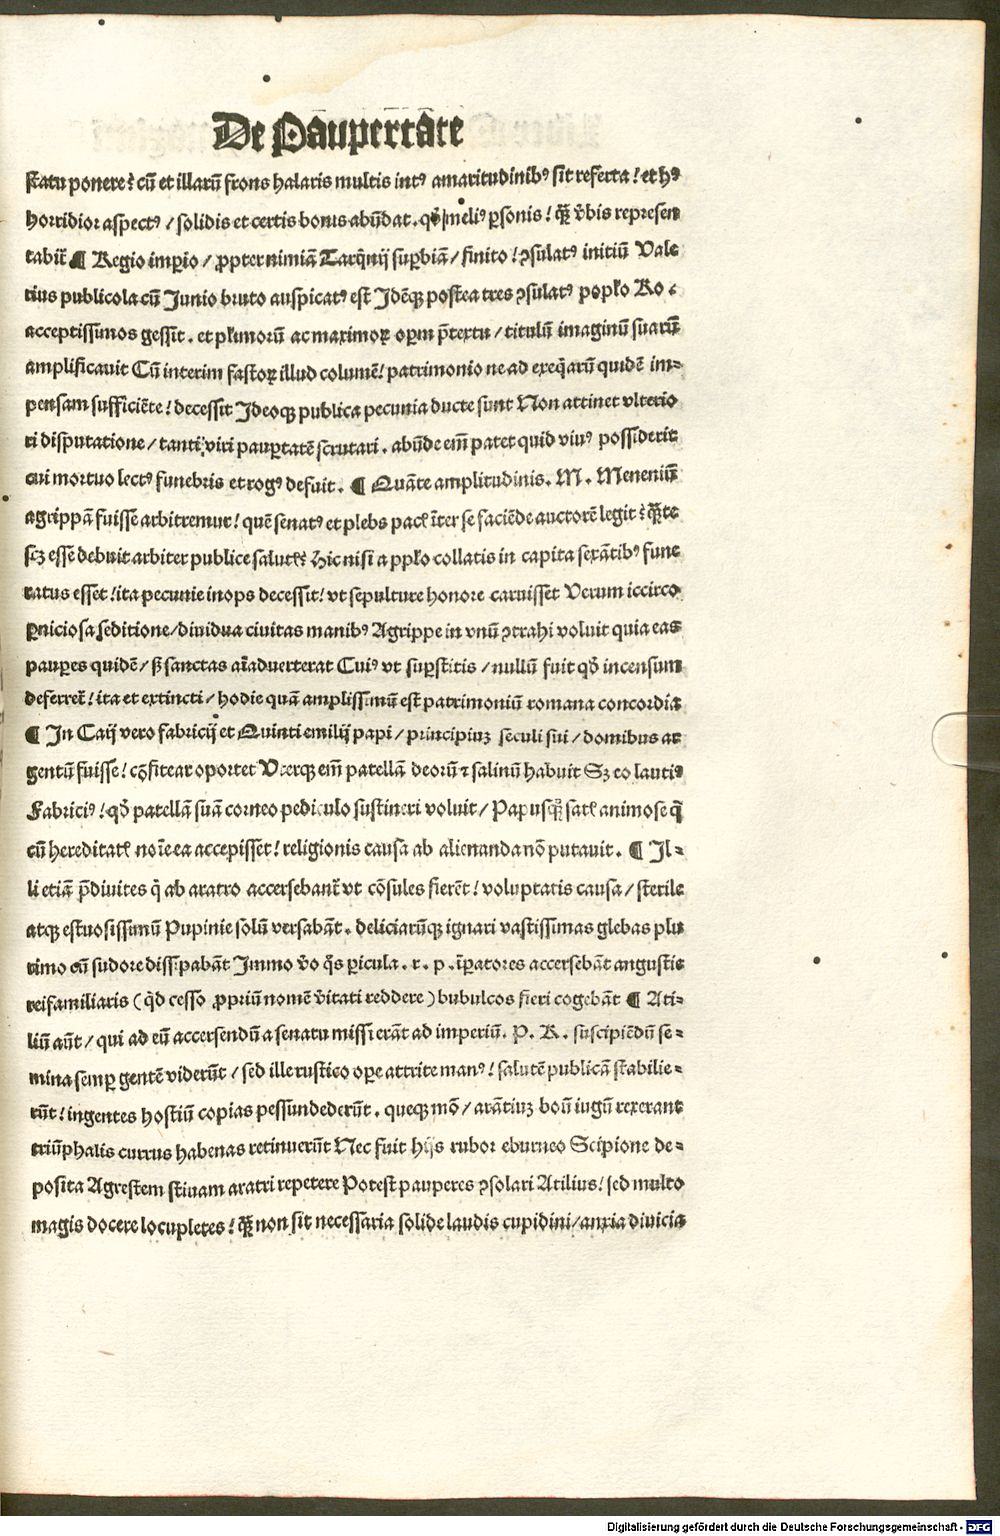 De Pāupert̄ate
statu ponere? cū et illarū frons halaris multis intꝰ amaritudinibꝰ sit referta! et hꝰ
horridior aspectꝰ / solidis et certis bonis abūdat. qð meliꝰ ꝑsonis! q̄ꝫ v̄bis represen
tabit̄ ¶ Regio imꝑio / ꝓpter nimiā Tarq̄nij suꝑbiā / finito! ꝯsulatꝰ initiū Vale
rius publicola cū Junio bruto auspicatꝰ est Jdēqꝫ postea tres ꝯsulatꝰ popło Ro.
acceptissimos gessit. et płimorū ac maximoꝝ oꝑm p̄textu / titulū imaginū suarū
amplificauit Cū interim fastoꝝ illud columē! patrimonio ne ad exeq̄arū quidē im-
pensam sufficiēte! decessit Jdeoqꝫ publica pecunia ducte sunt Non attinet vlterio
ri disputatione / tanti viri pauꝑtatē scrutari. abūde em̄ patet quid viuꝰ possiderit
cui mortuo lectꝰ funebris et rogꝰ defuit. ¶ Quāte amplitudinis. M. Meneniū
agrippā fuisse arbitremur! quē senatꝰ et plebs pacꝭ īter se faciēde auctorē legit? q̄ꝫte
scꝫ esse debuit arbiter publice salutꝭ? Hic nisi a ppło collatis in capita sexātibꝰ fune
ratus esset! ita pecunie inops decessit! vt sepulture honore caruisset Verum iccirco
ꝑniciosa seditione / diuidua ciuitas manibꝰ Agrippe in vnū ꝯtrahi voluit quia eas
pauꝑes quidē / sꝫ sanctas aīaduerterat Cuiꝰ vt suꝑstitis / nullū fuit qð incensum
deferret̄! ita et extincti / hodie quā amplissimū est patrimoniū romana concordia
¶ Jn Caij vero fabricij et Quinti emilij papi / principiuꝫ seculi sui / domibus ar
gentū fuisse! cōfitear oportet Vterqꝫ em̄ patellā deorū ⁊ salinū habuit Sꝫ eo lautiꝰ
Fabriciꝰ! qð patellā suā corneo pediculo sustineri voluit / Papusqꝫ satꝭ animose q̄
cū hereditatꝭ noīe ea accepisset! religionis causa ab alienanda nō putauit. ¶ Jl-
li etiā p̄diuites q̄ ab aratro accersebant̄ vt cōsules fierēt! voluptatis causa / sterile
atqꝫ estuosissimū Pupinie solū versabāt. deliciarūqꝫ ignari vastissimas glebas plu
rimo cū sudore dissipabāt Jmmo v̄o q̄s ꝑicula. r. p. īꝑatores accersebāt angustie
reifamiliaris (q̄d cesso ꝓpriū nomē v̄itati reddere) bubulcos fieri cogebāt ¶ Ati-
liū aūt / qui ad eū accersendū a senatu missi erāt ad imperiū. P. R. suscipiēdū se-
mina semꝑ gentē viderūt / sed ille rustico oꝑe attrite manꝰ! salutē publicā stabilie-
rūt! ingentes hostiū copias pessundederūt. queqꝫ mō / arātiuꝫ boū iugū rexerant
triūphalis currus habenas retinuerūt Nec fuit hijs rubor eburneo Scipione de-
posita Agrestem stiuam aratri repetere Potest pauperes ꝯsolari Atilius! sed multo
magis docere locupletes! q̄ꝫ non sit necessaria solide laudis cupidini / anxia diuicia
Digitalisierung gefördert durch die Deutsche Forschungsgemeinschaft - DFG